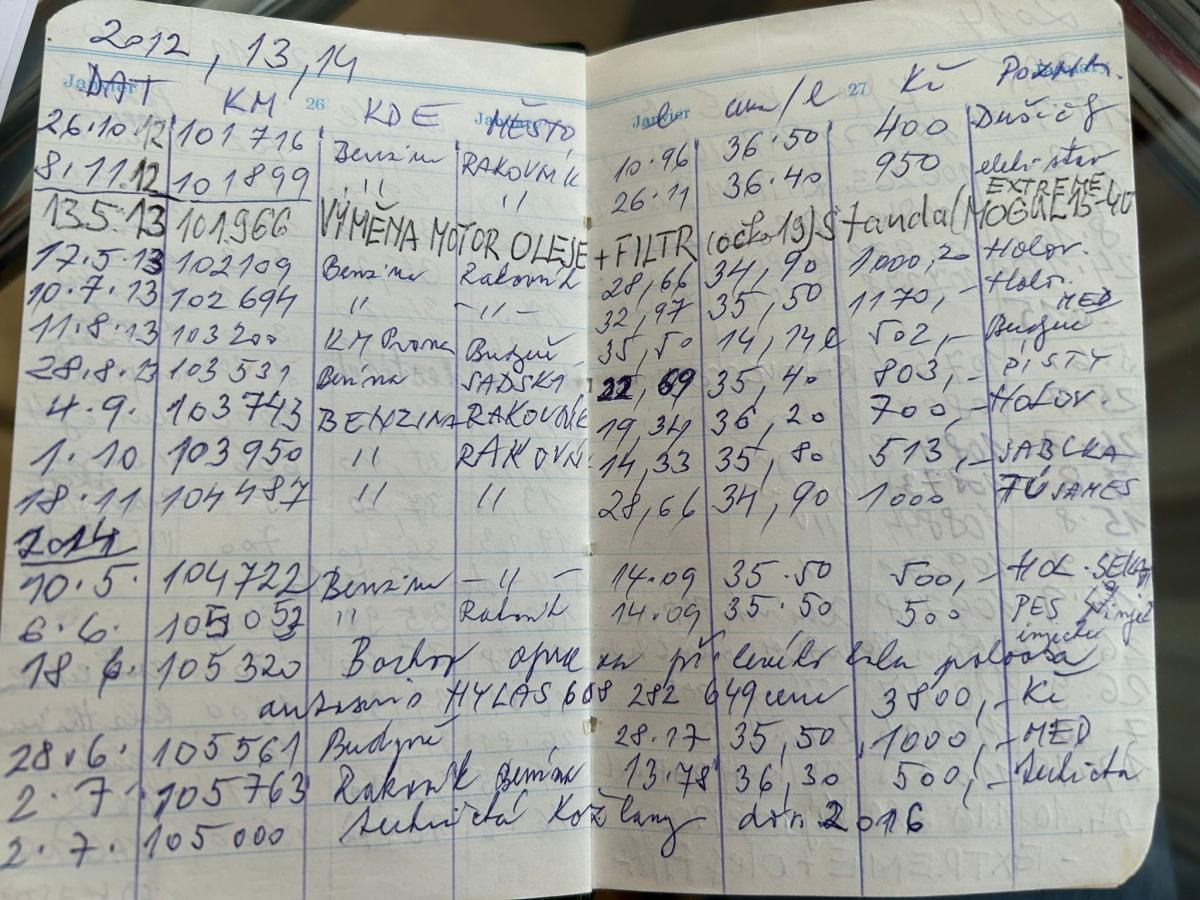 2012, 13, 14
Janvier 26 Janvier Janvier 27 Janvier
DAT KM KDE MĚSTO l cena/l Kč Pozn.
26.10.12 101716 Benzina RAKOVNÍK 10.96 36.50 400 Dušičky
8.11.12 101899 " " 26.11 36.40 950 elektr
13.5.13 101966 VÝMĚNA MOTOR OLEJE + FILTR (očko 19) Standa/MOGUL EXTREME 15-40
17.5.13 102109 Benzina Rakovník 28,66 34,90 1000,20 Holov.
10.7.13 102694 " -"- 32,97 35,50 1170,- Holov. MED
11.8.13 103200 KM Prona Budyně 35,50 14,14l 502,- Budyně
28.8.13 103531 Benzina SADSKÁ 22,69 35,40 803,- PÍSTY
4.9. 103743 BENZINA RAKOVNÍK 19,34 36,20 700,- HOLOV.
1.10 103950 " RAKOVNÍ 14,33 35,80 513,- SABLKA
18.11 104487 " " 28,66 34,90 1000 TÚ JAMES
2014
10.5. 104722 Benzina -"- 14.09 35.50 500,- HOL. SEKA
6.6. 105052 " Rakovník 14.09 35.50 500 PES injekce
18.6. 105320 Bochov oprava při kola poloosa
autoservis HYLAS 608 282 649 cena 3800,- Kč
28.6. 105561 Budyně 28.17 35,50 1000,- MED
2.7. 105763 Rakovník Benzina 13.78 36,30 500,- technická
2.7. 105000 technická Kožlany do r. 2016